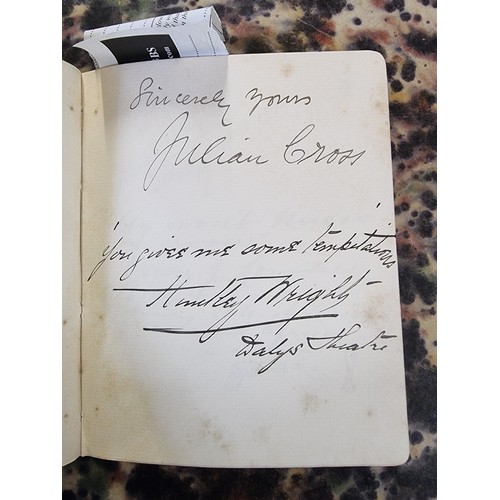 BS
Sincerely yours
Julian Cross
'You gives me some temptations'
Huntley Wright
Dalys Theatre